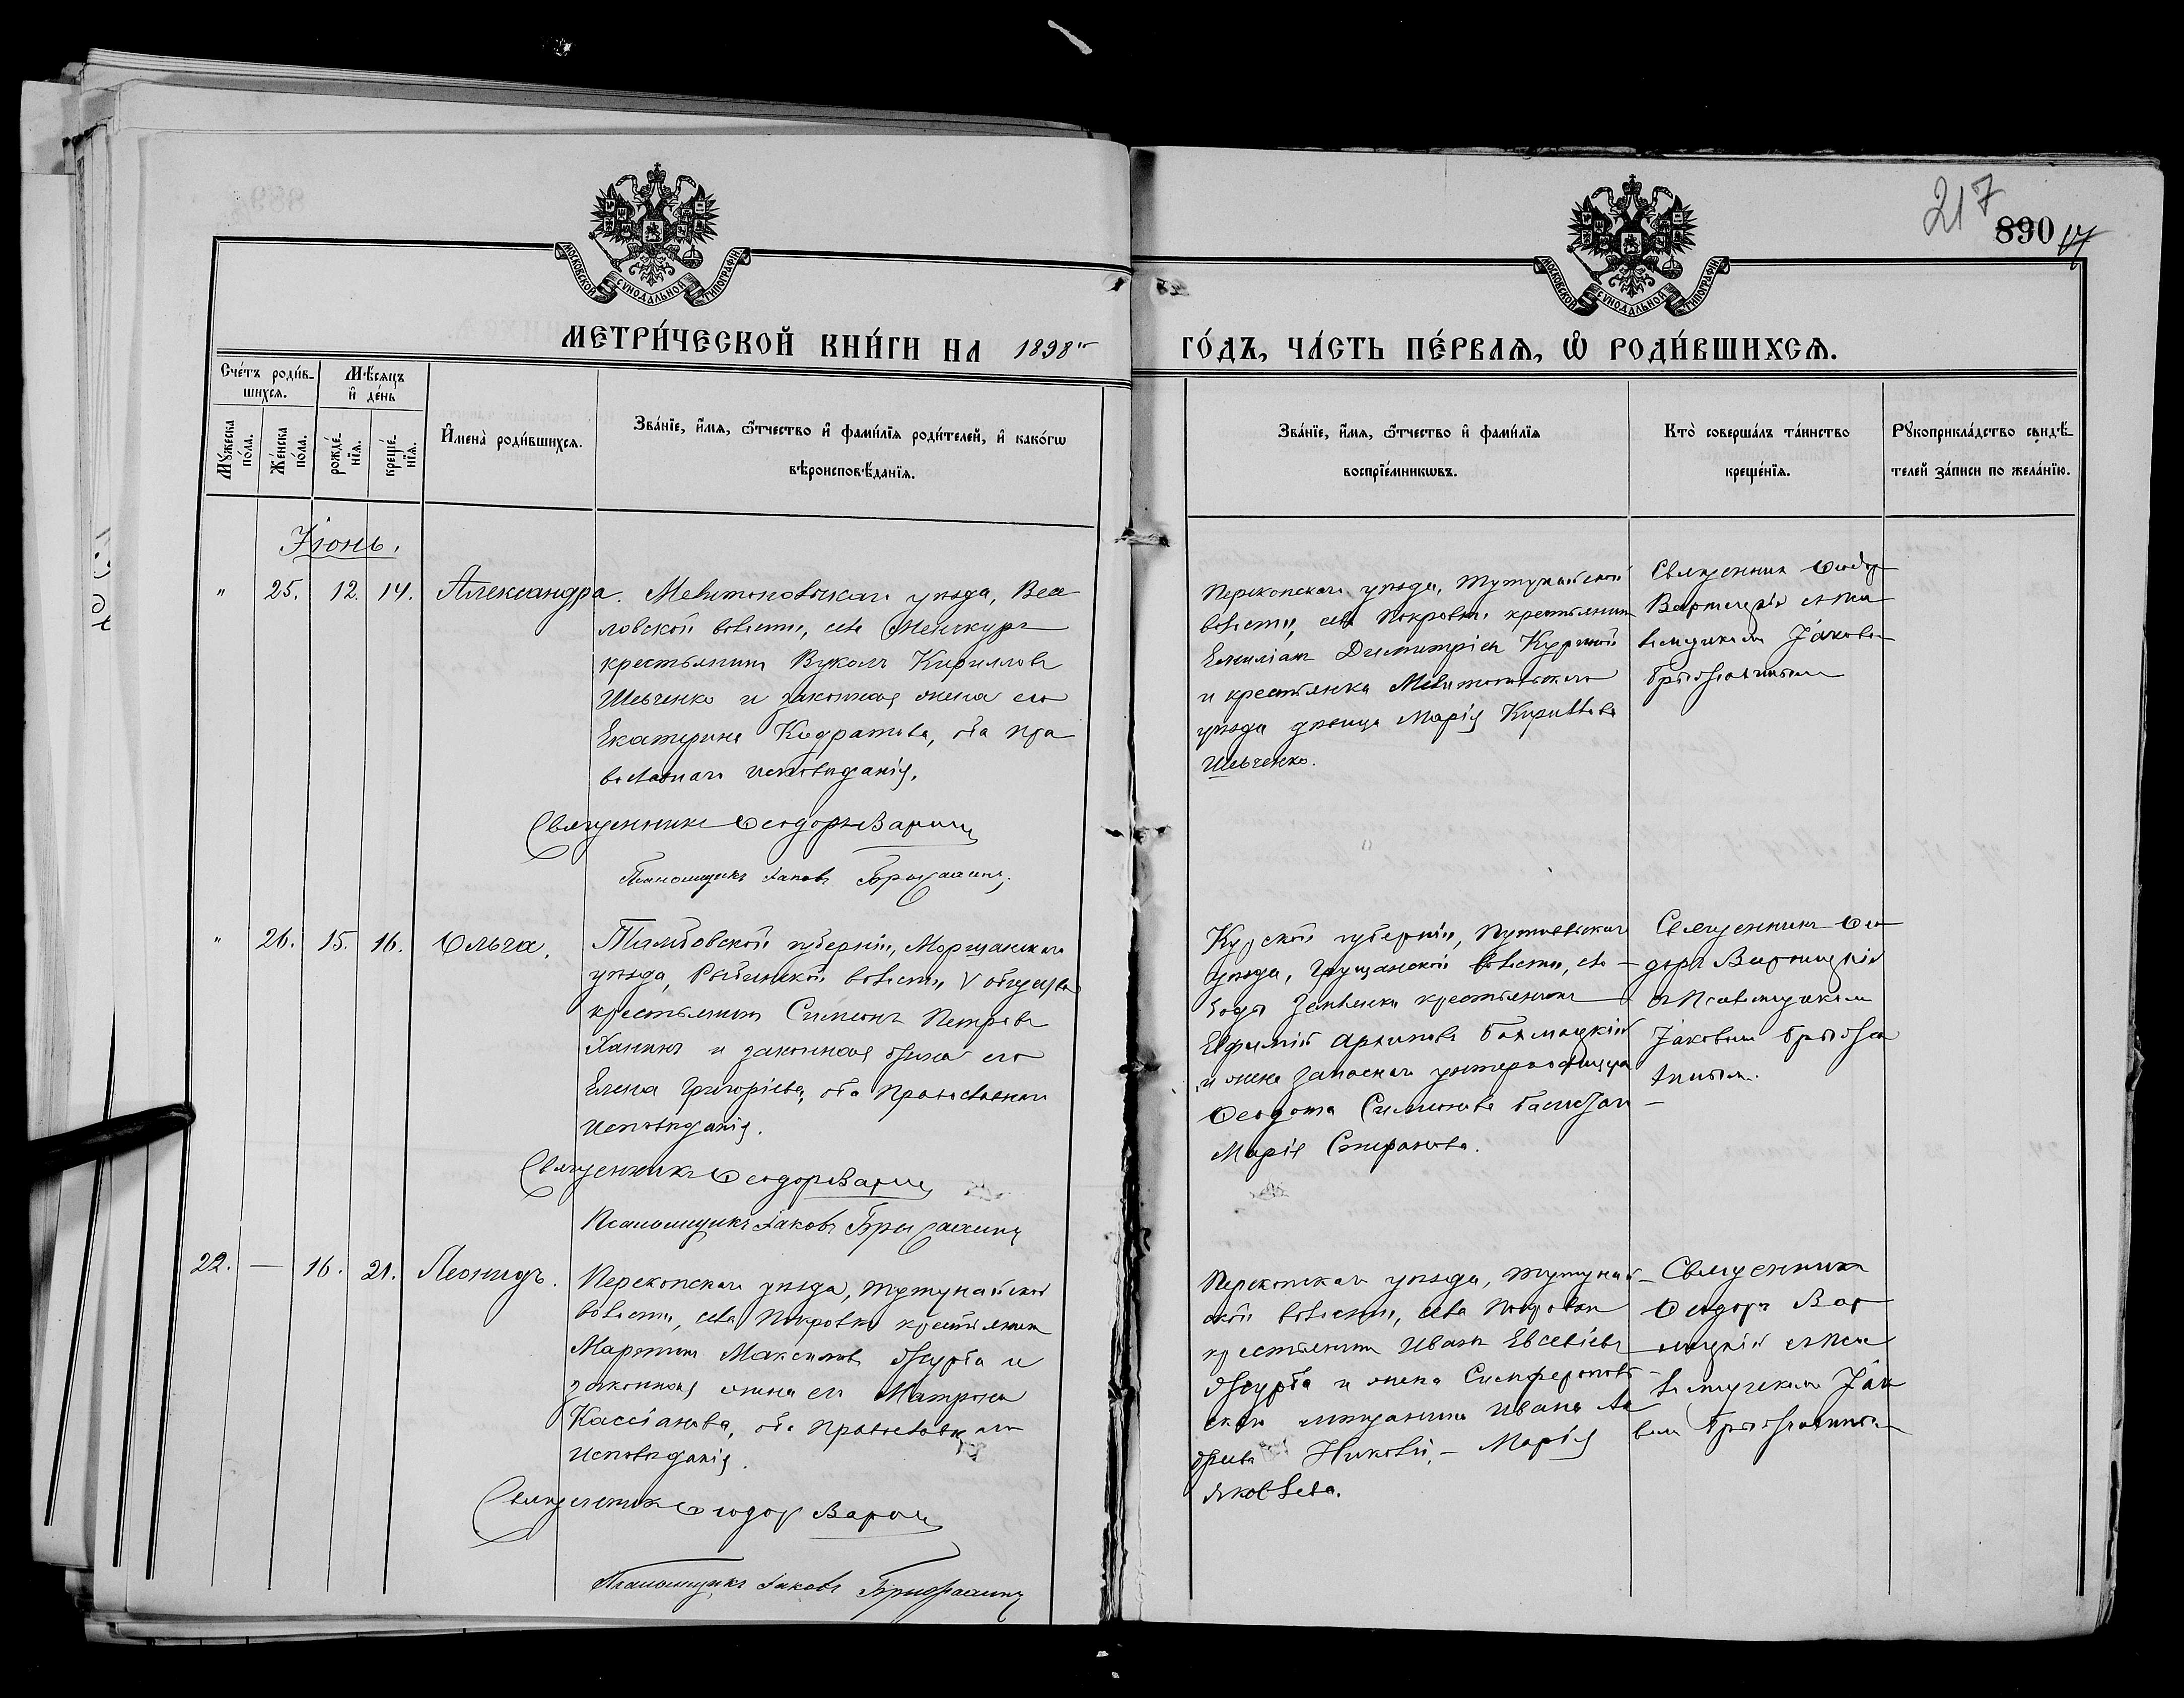 217
890
МОСКОВСКОЙ СѴНОДАЛЬНОЙ ТИПОГРАФІИ
МОСКОВСКОЙ СѴНОДАЛЬНОЙ ТИПОГРАФІИ
МЕТРИ́ЧЕСКОЙ КНИ́ГИ НА 1898
ГО́ДЪ, ЧА́СТЬ ПЕ́РВАѦ, Ѡ҆ РОДИ́ВШИХСѦ.
Сче́тъ роди́в-
шихсѧ.
Мѣ́сѧцъ
и҆ де́нь
Мꙋ́жеска по́ла.
Же́нска по́ла.
рожде́-нїѧ.
креще́-нїѧ.
И҆мена̀ роди́вшихсѧ.
Зва́нїе, и҆́мѧ, ѻ҆́тчество и҆ фами́лїѧ роди́телей, и҆ како́гѡ
вѣроисповѣ́данїѧ.
Зва́нїе, и҆́мѧ, ѻ҆́тчество и҆ фами́лїѧ
воспрїе́мникѡвъ.
Кто̀ соверша́лъ та́инство
креще́нїѧ.
Рꙋкоприкла́дство свидѣ́-
телей за́писи по жела́нїю.
Іюнь.
" 25. 12. 14. Александра.
Мелитопольскаго уѣзда, Весе
ловской волости, села
крестьянинъ Вуколъ Кирилловъ
Шевченко и законная жена его
Екатерина Кодратова, оба пра
вославнаго исповѣданія.
Священникъ Ѳеодоръ Варниц
Псаломщикъ Іаковъ
Перекопскаго уѣзда, Тутунайской
волости, села Покровки крестьянинъ
Емиліанъ Димитріевъ
и крестьянка Мелитопольскаго
уѣзда дѣвица Марія Кириллова
Шевченко.
Священникъ Ѳеодоръ
Варницкій съ Пса
ломщикомъ Іаковомъ
" 26. 15. 16. Ольга.
Тамбовской губерніи, Моршанскаго
уѣзда, Рыбинской волости V общества
крестьянинъ Симеонъ Петровъ
Ханинъ и законная жена его
Елена Григоріева, оба православнаго
исповѣданія.
Священникъ Ѳеодоръ Варниц
Псаломщикъ Іаковъ
Курской губерніи, Путивльскаго
уѣзда, Грузчанской волости, сло-
боды крестьянинъ
Евфимій Архиповъ
и жена запаснаго унтеръ-офицера
Ѳеодота Симонова
Марія Спиридонова.
Священникъ Ѳео
доръ Варницкій
съ Псаломщикомъ
Іаковомъ
22. — 16. 21. Леонидъ.
Перекопскаго уѣзда, Тутунайской
волости, села Покровки крестьянинъ
Мартинъ Максимовъ Джурба и
законная жена его Матрона
Кассіанова, оба православнаго
исповѣданія.
Священникъ Ѳеодоръ Варниц
Псаломщикъ Іаковъ
Перекопскаго уѣзда, Тутунай-
ской волости, села Покровки
крестьянинъ Иванъ Евсевіевъ
Джурба и жена Симферополь-
скаго мѣщанина Ивана Ан
Марія
Яковлева.
Священникъ
Ѳеодоръ Вар
ницкій съ Пса
ломщикомъ Іако
вомъ